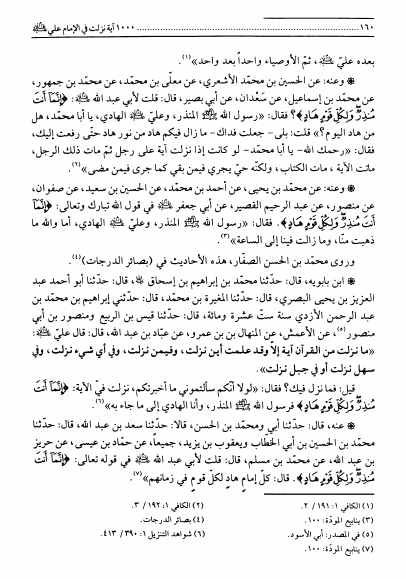 ١٦٠ ........ ١٠٠٠ آية نزلت في الإمام علي ﷺ
بعده عليّ ﷺ، ثمّ الأوصياء واحداً بعد واحد»(١).
* وعنه: عن الحسين بن محمّد الأشعري، عن معلّى بن محمّد، عن محمّد بن جمهور،
عن محمّد بن إسماعيل، عن سَعْدان، عن أبي بصير، قال: قلت لأبي عبد الله ﷺ: ﴿إِنَّمَآ أَنتَ
مُنذِرٌ وَلِكُلِّ قَوْمٍ هَادٍ﴾؟ فقال: «رسول الله ﷺ المنذر، وعليّ ﷺ الهادي، يا أبا محمّد، هل
من هاد اليوم؟» قلت: بلى- جعلت فداك- ما زال فيكم هاد من نور هاد حتّى رفعت إليك،
فقال: «رحمك الله- يا أبا محمّد- لو كانت إذا نزلت آية على رجل ثمّ مات ذلك الرجل،
ماتت الآية، مات الكتاب، ولكنّه حيّ يجري فيمن بقي كما جرى فيمن مضى»(٢).
* وعنه: عن محمّد بن يحيى، عن أحمد بن محمّد، عن الحسين بن سعيد، عن صفوان،
عن منصور، عن عبد الرحيم القصير، عن أبي جعفر ﷺ في قول الله تبارك وتعالى: ﴿إِنَّمَآ
أَنتَ مُنذِرٌ وَلِكُلِّ قَوْمٍ هَادٍ﴾. فقال: «رسول الله ﷺ المنذر، وعليّ ﷺ الهادي، أما والله ما
ذهبت منّا، وما زالت فينا إلى الساعة»(٣).
وروى محمّد بن الحسن الصفّار، هذه الأحاديث في (بصائر الدرجات)(٤).
* ابن بابويه، قال: حدّثنا محمّد بن إبراهيم بن إسحاق، قال: حدّثنا أبو أحمد عبد
العزيز بن يحيى البصري، قال: حدّثنا المغيرة بن محمّد، قال: حدّثني إبراهيم بن محمّد بن
عبد الرحمن الأزدي سنة ستّ عشرة ومائة، قال: حدّثنا قيس بن الربيع ومنصور بن أبي
منصور(٥)، عن الأعمش، عن المنهال بن بن عمرو، عن عبّاد بن عبد الله، قال: قال عليّ ﷺ:
«ما نزلت من القرآن آية إلّا وقد علمت أين نزلت، وفيمن نزلت، وفي أي شيء نزلت، وفي
سهل نزلت أو في جبل نزلت».
قيل: فما نزل فيك؟ فقال: «لولا أنّكم سألتموني ما أخبرتكم، نزلت فيّ الآية: ﴿إِنَّمَآ أَنتَ
مُنذِرٌ وَلِكُلِّ قَوْمٍ هَادٍ﴾ فرسول الله ﷺ المنذر، وأنا الهادي إلى ما جاء به»(٦).
* عنه، قال: حدّثنا أبي ومحمّد بن الحسن، قالا: حدّثنا سعد بن عبد الله، قال: حدّثنا
محمّد بن الحسين بن أبي الخطّاب ويعقوب بن يزيد، جميعاً، عن حمّاد بن عيسى، عن حريز
بن عبد الله، عن محمّد بن مسلم، قال: قلت لأبي عبد الله ﷺ في قوله تعالى: ﴿إِنَّمَآ أَنتَ
مُنذِرٌ وَلِكُلِّ قَوْمٍ هَادٍ﴾. قال: كلّ إمام هادٍ لكلّ قومٍ في زمانهم»(٧).
(١) الكافي ١: ١٩١/ ٢. (٢) الكافي ١: ١٩٢/ ٣.
(٣) ينابيع المودّة: ١٠٠. (٤) بصائر الدرجات.
(٥) في المصدر: أبي الأسود. (٦) شواهد التنزيل ١: ٣٩٠/ ٤١٣.
(٧) ينابيع المودّة: ١٠٠.